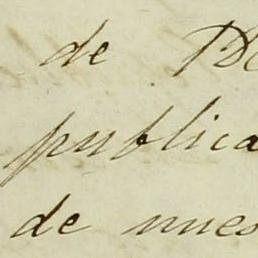 de
publica
de nues